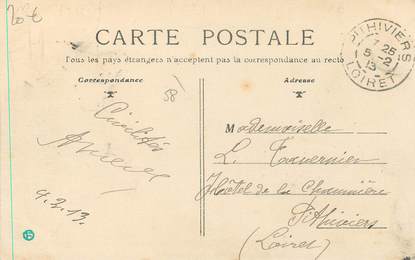 20€
CARTE POSTALE
Tous les pays étrangers n'acceptent pas la correspondance au recto
Correspondance
Adresse
PITHIVIERS
7 25
5-2
13
LOIRET
58
Civilités
4.2.13.
Mademoiselle
L. Tavernier
Hôtel de la Chaumière
Pithiviers
(Loiret)